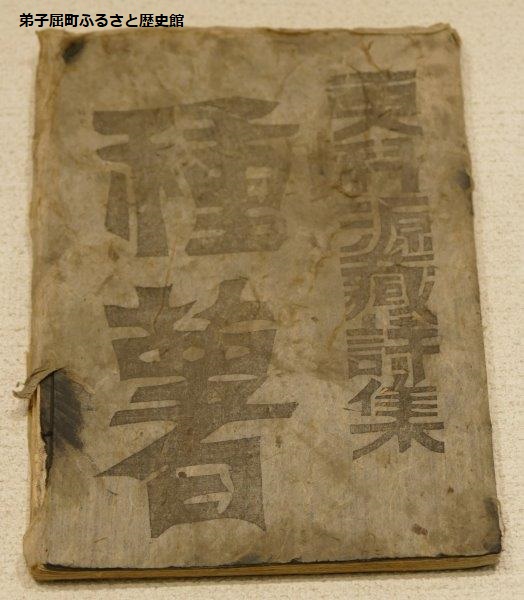 弟子屈町ふるさと歴史館
更科源藏詩集
種薯